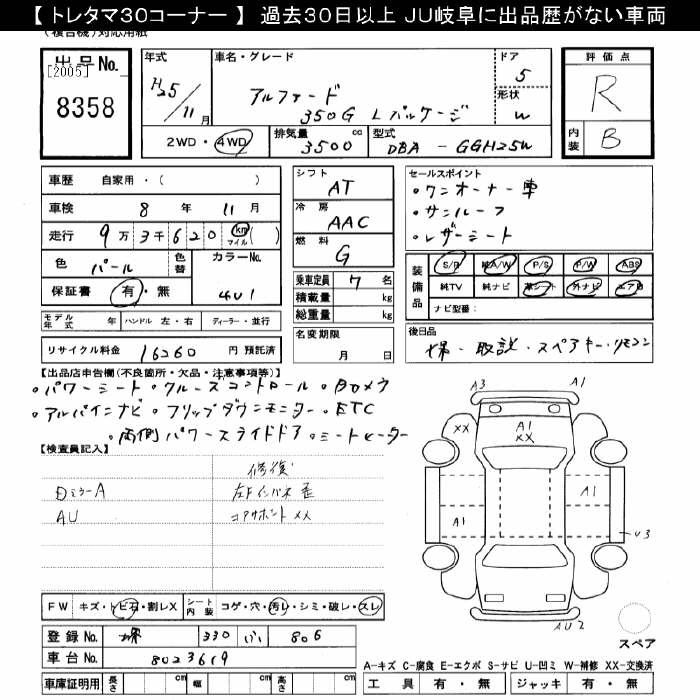 【 トレタマ30コーナー 】 過去30日以上 JU岐阜に出品歴がない車両
(複合機)対応用紙
出品No. [2005] 8358
年式 H25/11月
車名・グレード アルファード 350G Lパッケージ
ドア 5
形状 W
評価点 R
内装 B
2WD・4WD
排気量 3500 cc
型式 DBA - GGH25W
車歴 自家用・( )
車検 8 年 11 月
走行 9 万 3 千 6 2 0 km マイル ( )
色 パール 色替
カラーNo. 4U1
保証書 有・無
モデル年式 年 ハンドル 左・右 ディーラー・並行
リサイクル料金 16260 円 預託済
シフト AT
冷房 AAC
燃料 G
乗車定員 7 名
積載量 kg
総重量 kg
名変期限 月 日
セールスポイント
・ワンオーナー車
・サンルーフ
・レザーシート
装備品 S/R 純A/W P/S P/W ABS
純TV 純ナビ 革シート 外ナビ エアB
ナビ型番:
後日品
・取説・スペアキー・リモコン
【出品店申告欄(不良箇所・欠品・注意事項等)】
・パワーシート・クルーズコントロール・Bカメラ
・アルパインナビ・フリップダウンモニター・ETC
・両側パワースライドドア・シートヒーター
【検査員記入】
修復
左Fインパネ歪
コアサポート XX
ミラーA
AU
A3 A1
XX A1 XX
A1
A1
U3
AU2
スペア
FW キズ・トビ石・割レX シート内装 コゲ・穴・汚レ・シミ・破レ・スレ
登録No. 堺 330 い 806
車台No. 8023619
車庫証明用 長さ cm 幅 cm 高さ cm
A-キズ C-腐食 E-エクボ S-サビ U-凹ミ W-補修 XX-交換済
工具 有・無 ジャッキ 有・無